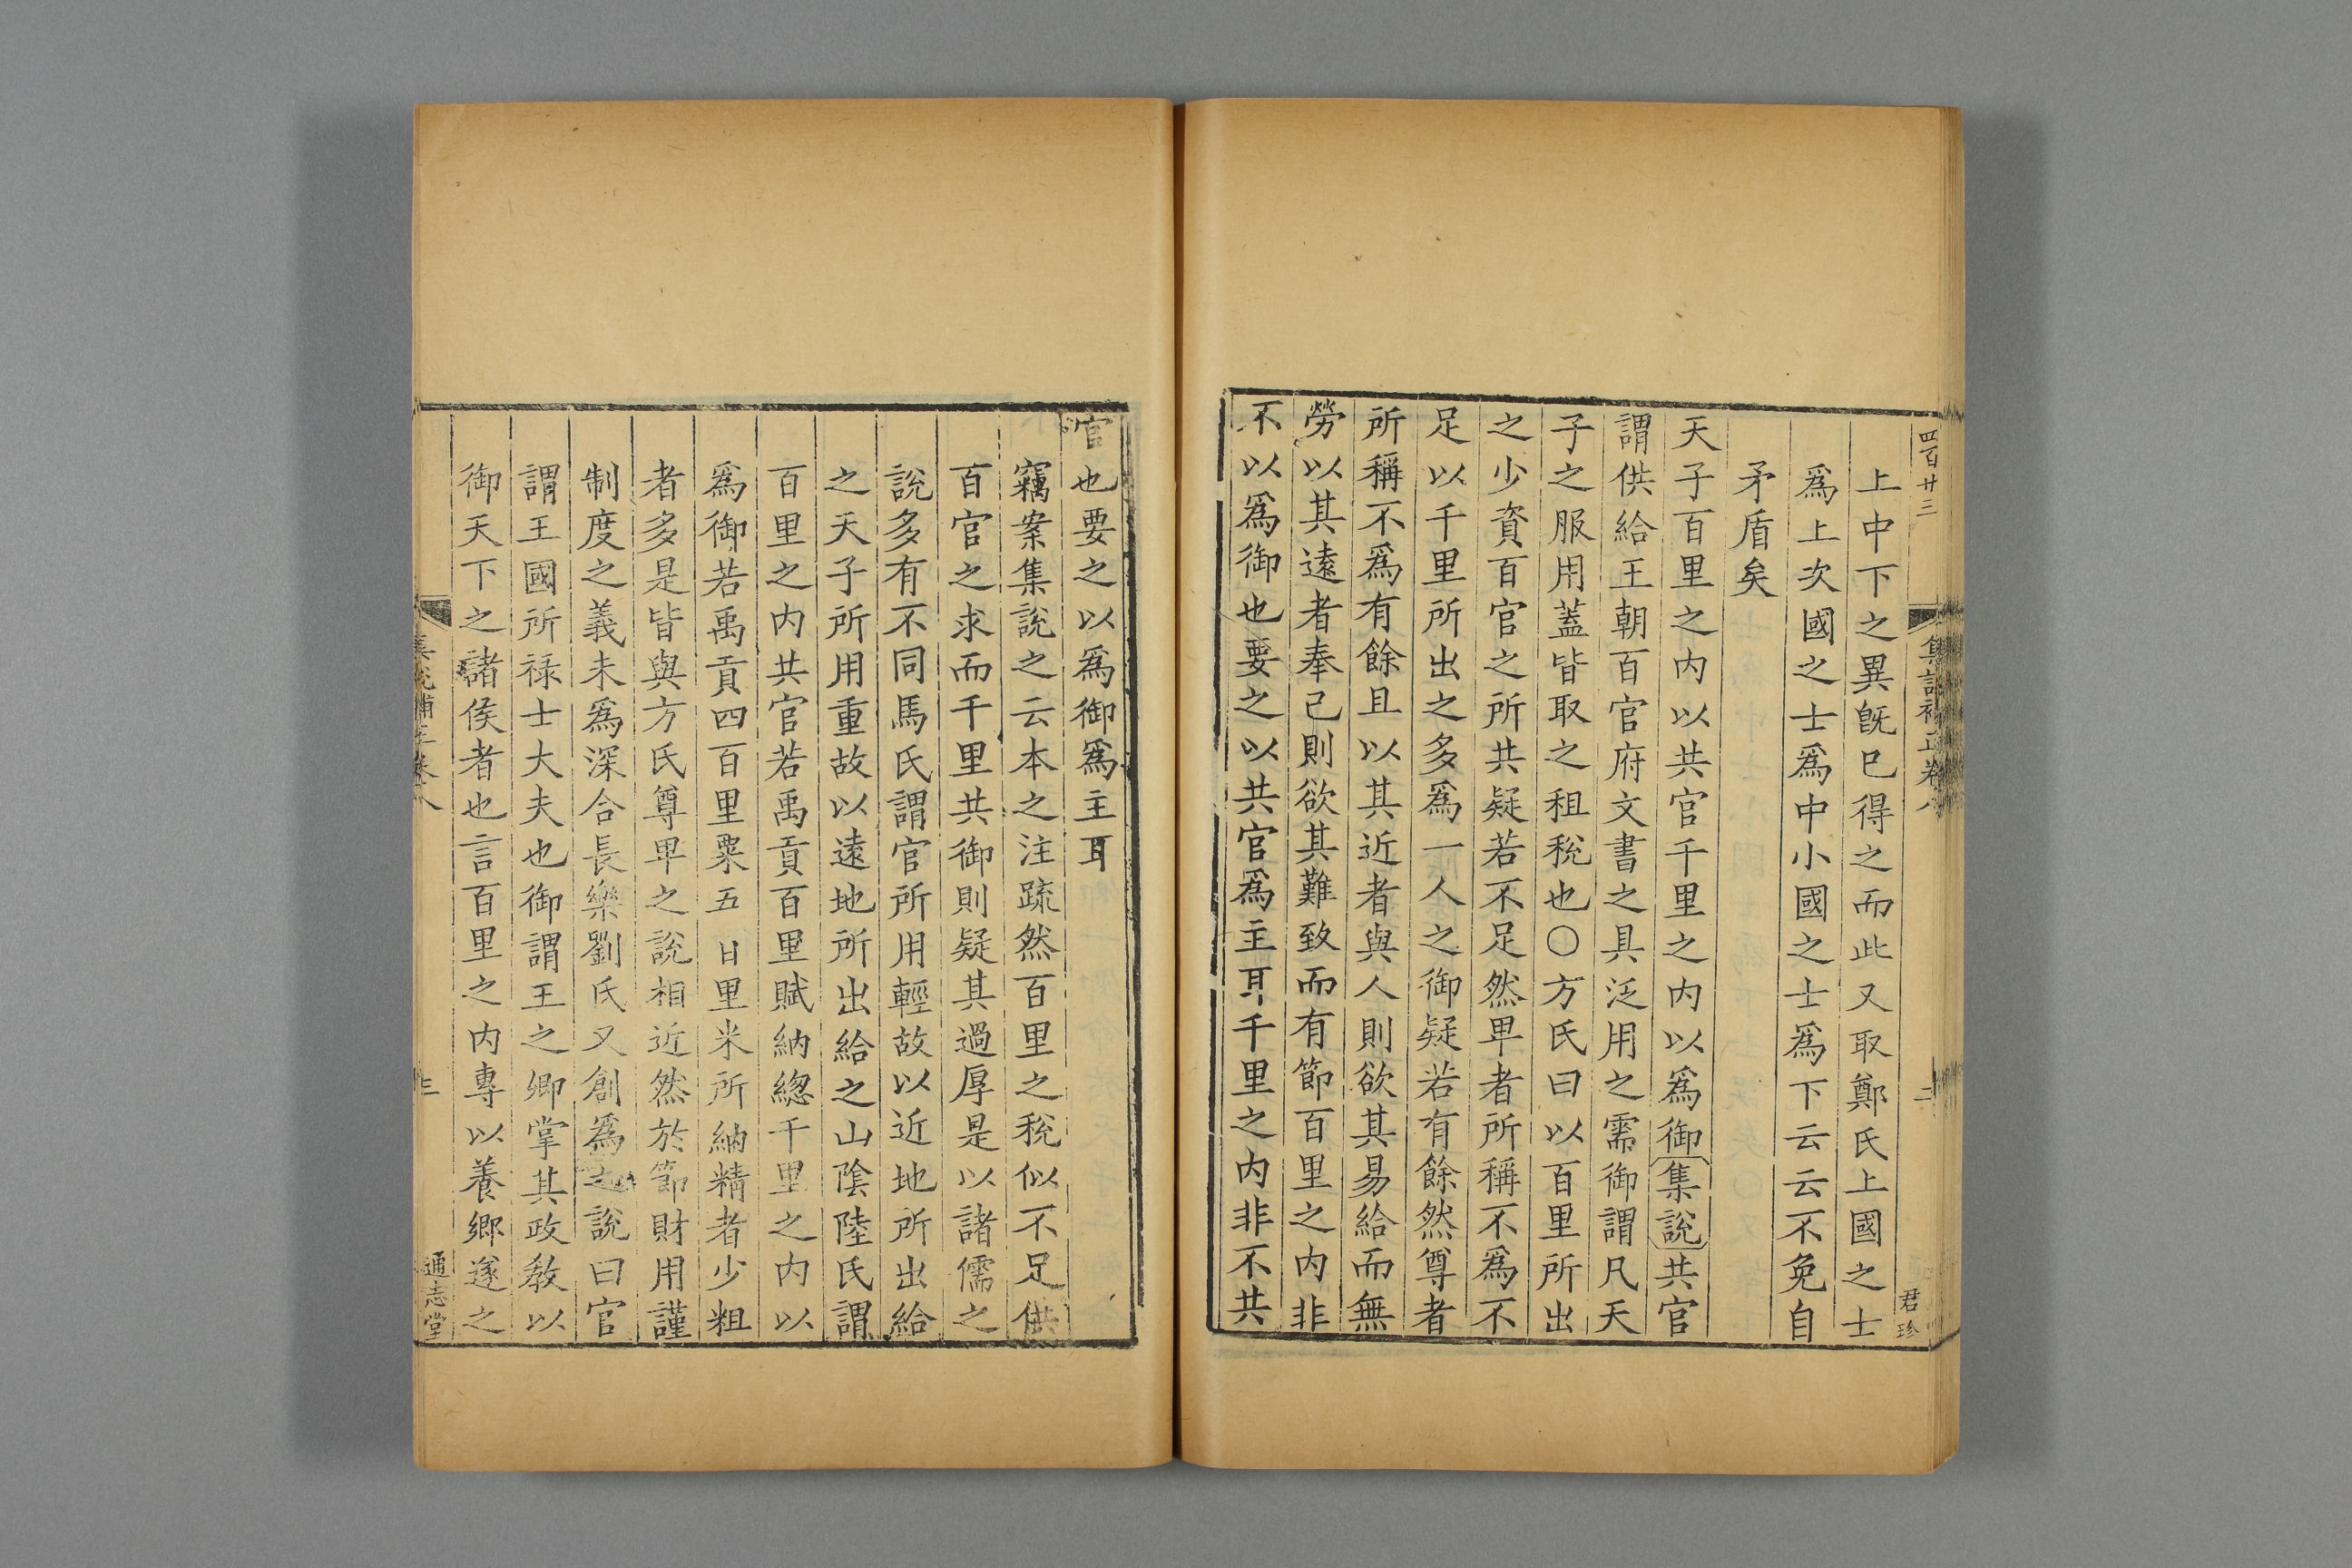 四百廿三
集說補正卷八
二
君珍
上中下之異旣巳得之而此又取鄭氏上國之士
爲上次國之士爲中小國之士爲下云云不免自
矛盾矣
天子百里之內以共官千里之內以爲御集說共官
謂供給王朝百官府文書之具泛用之需御謂凡天
子之服用蓋皆取之租稅也○方氏曰以百里所出
之少資百官之所共疑若不足然卑者所稱不爲不
足以千里所出之多爲一人之御疑若有餘然尊者
所稱不爲有餘且以其近者與人則欲其易給而無
勞以其遠者奉己則欲其難致而有節百里之內非
不以爲御也要之以共官爲主耳千里之內非不共
官也要之以爲御爲主耳
竊案集說之云本之注疏然百里之稅似不足供
百官之求而千里共御則疑其過厚是以諸儒之
說多有不同馬氏謂官所用輕故以近地所出給
之天子所用重故以遠地所出給之山陰陸氏謂
百里之內共官若禹貢百里賦納總千里之內以
爲御若禹貢四百里粟五日里米所納精者少粗
者多是皆與方氏尊卑之說相近然於節財用謹
制度之義未爲深合長樂劉氏又創爲之說曰官
謂王國所祿士大夫也御謂王之卿掌其政教以
御天下之諸侯者也言百里之內專以養鄉遂之
集說補正卷八
三
通志堂